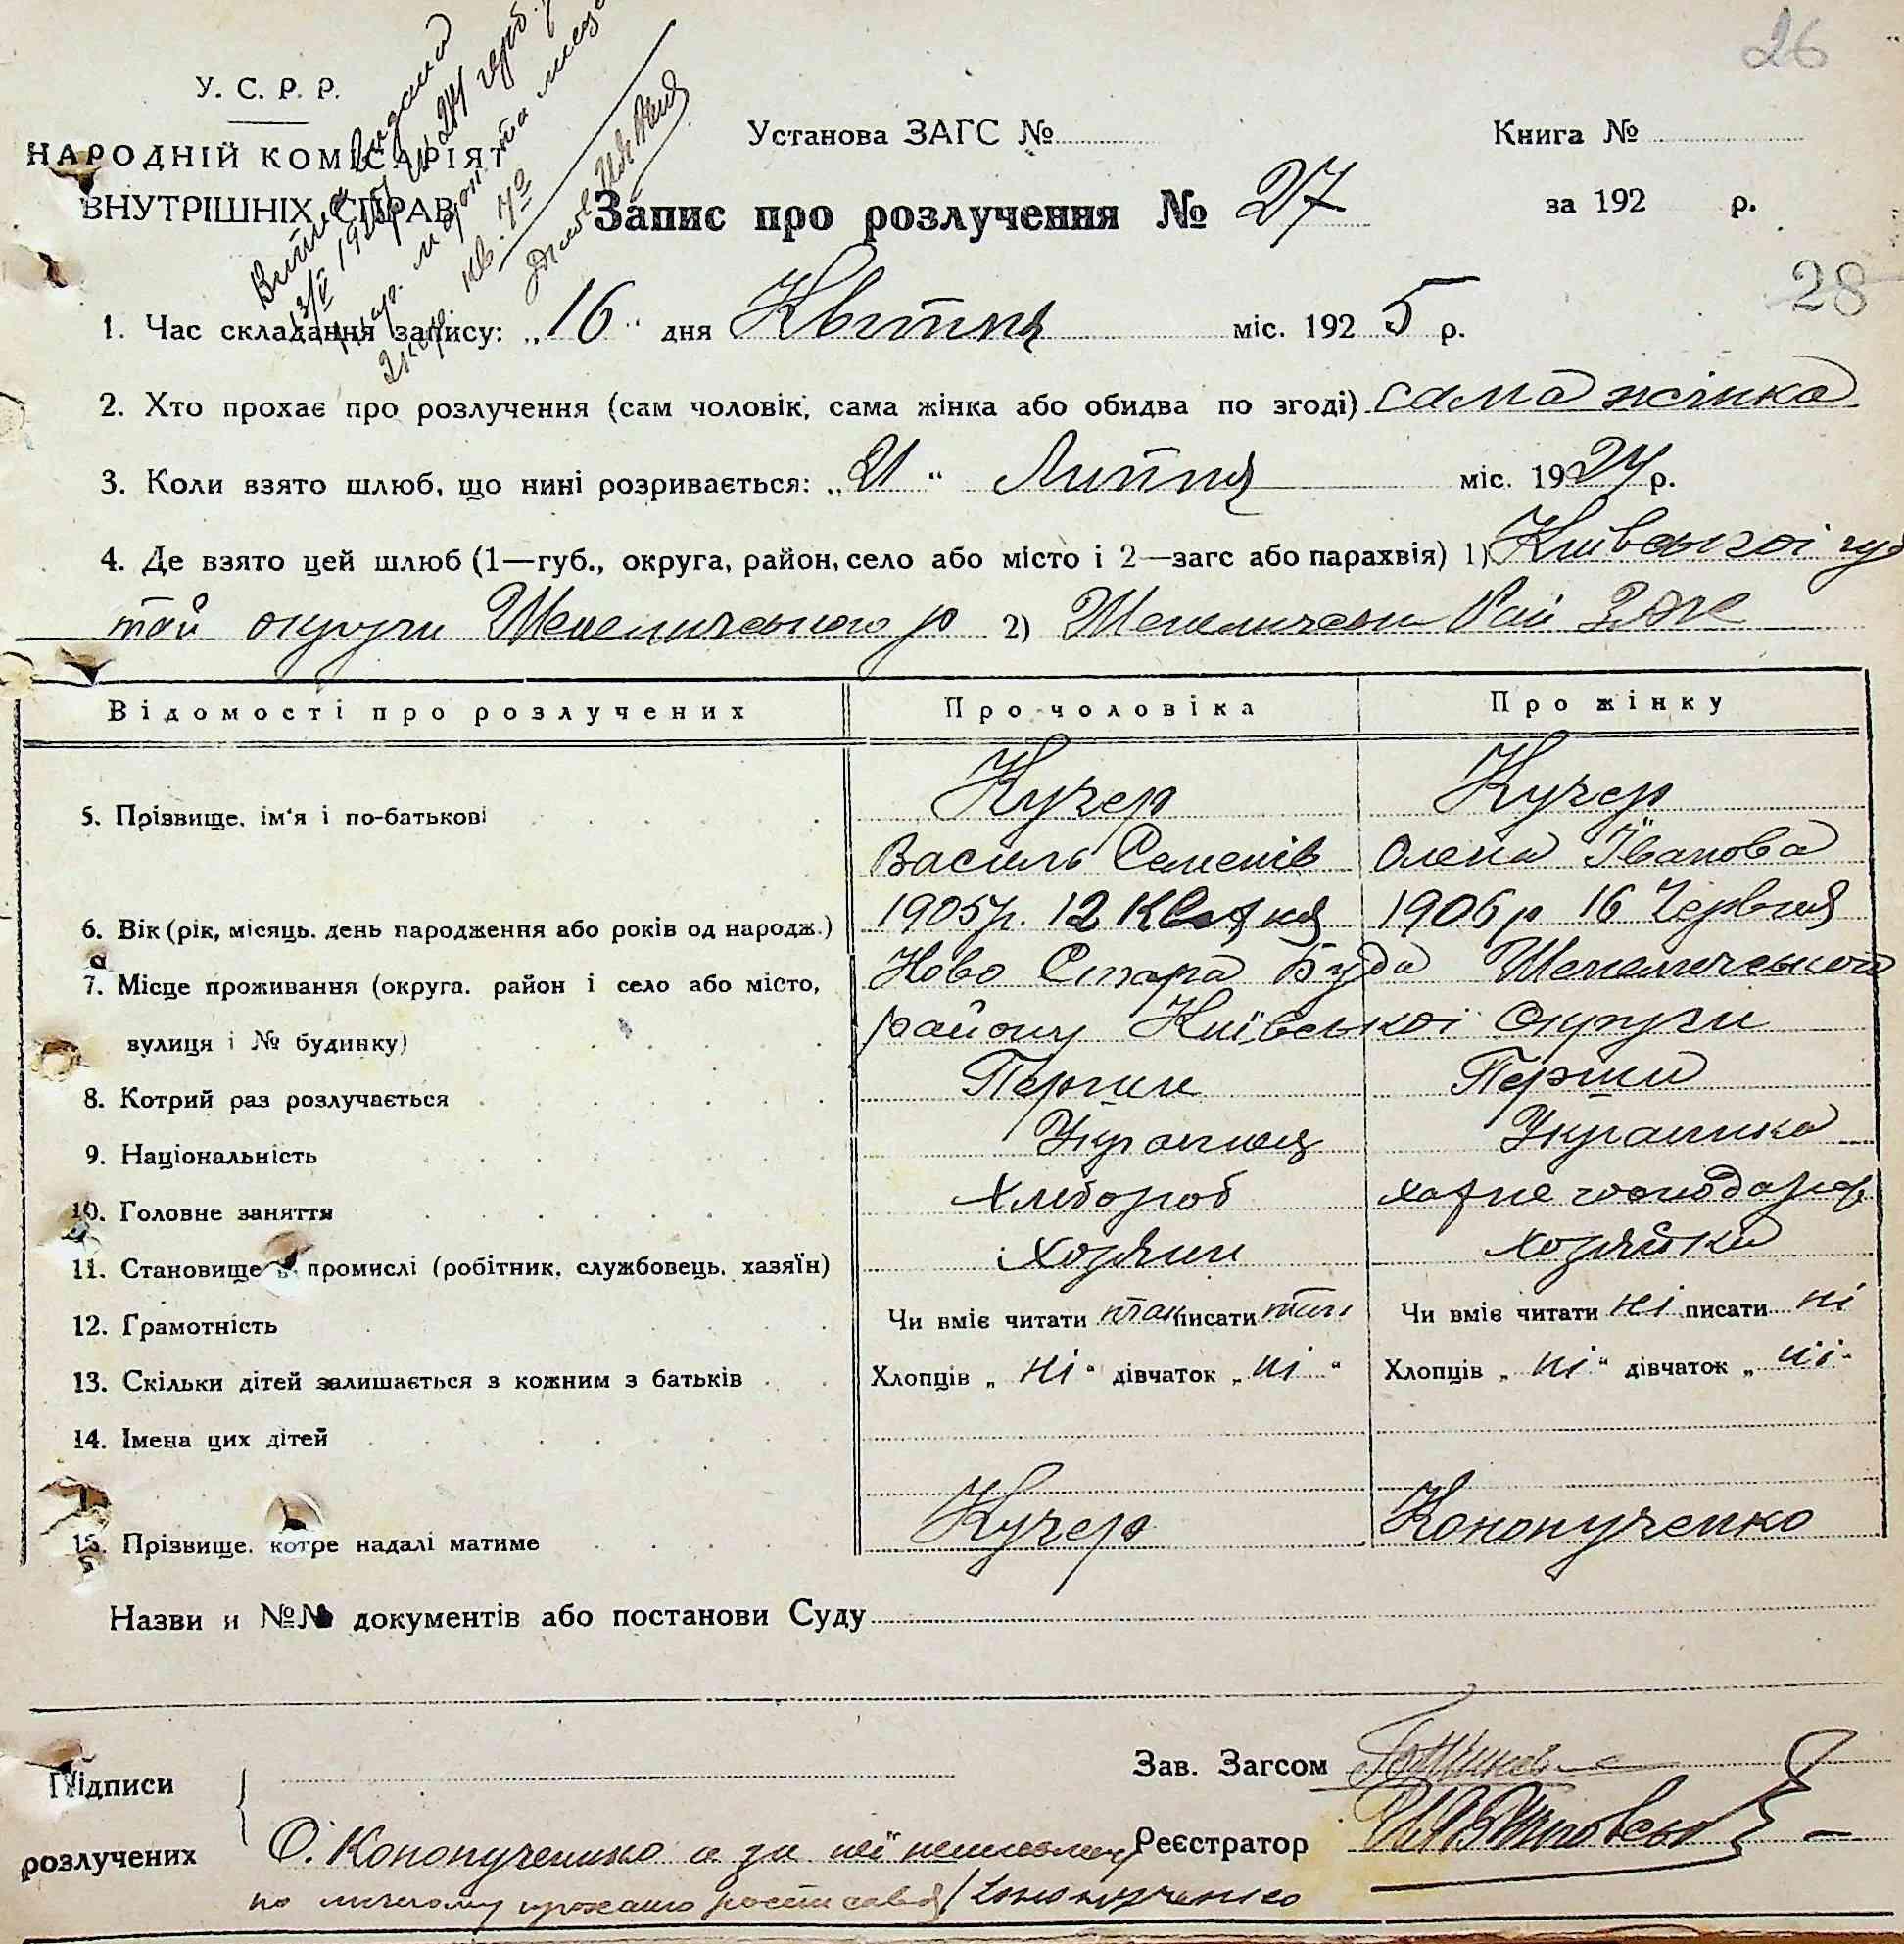 26
У. С. Р. Р.
НАРОДНІЙ КОМІСАРІЯТ
ВНУТРІШНІХ СПРАВ
Установа ЗАГС №
Книга №
Запис про розлучення № 27
за 192 р.
28
1. Час складання запису: „16“ дня Квітня міс. 1925 р.
2. Хто прохає про розлучення (сам чоловік, сама жінка або обидва по згоді) сама жінка
3. Коли взято шлюб, що нині розривається: „21“ Липня міс. 1924 р.
4. Де взято цей шлюб (1—губ., округа, район, село або місто і 2—загс або парахвія) 1) Київської губ
той округи Шепелицького р 2) Шепелицьки Рай ЗАГС
Відомості про розлучених Про чоловіка Про жінку
5. Прізвище, ім'я і по-батькові Кучер Кучер
Василь Семенів Олена Іванова
6. Вік (рік, місяць, день народження або років од народж.) 1905 р. 12 Квітня 1906 р 16 Червня
7. Місце проживання (округа, район і село або місто, Ново Стара Буда Шепелического
вулиця і № будинку) району Київської Округи
8. Котрий раз розлучається Перши Перши
9. Національність Українець Українка
10. Головне заняття Хлібороб хатнє господар
11. Становище в промислі (робітник, службовець, хазяїн) Хозяин хозяйка
12. Грамотність Чи вміє читати так писати так Чи вміє читати ні писати ні
13. Скільки дітей залишається з кожним з батьків Хлопців „ні“ дівчаток „ні“ Хлопців „ні“ дівчаток „ні“
14. Імена цих дітей
15. Прізвище, котре надалі матиме Кучер Конопученко
Назви и №№ документів або постанови Суду
Зав. Загсом
Підписи
розлучених О. Конопученко а за неї неписьмену Реєстратор
по личному проханю росписався Конопученко